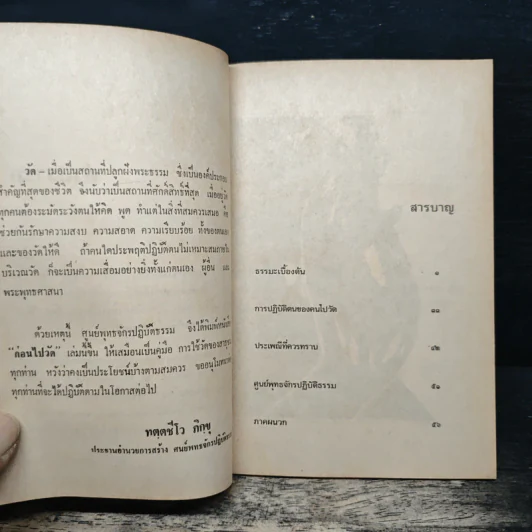 วัด – เมื่อเป็นสถานที่ปลูกฝังพระธรรม ซึ่งเป็นองค์ประกอบ
สำคัญที่สุดของชีวิต จึงนับว่าเป็นสถานที่ศักดิ์สิทธิ์ที่สุด เมื่ออยู่วัด
ทุกคนต้องระมัดระวังตนให้คิด พูด ทำแต่ในสิ่งที่สมควรเสมอ
ช่วยกันรักษาความสงบ ความสะอาด ความเรียบร้อย ทั้งของตนเอง
และของวัดให้ดี ถ้าคนใดประพฤติปฏิบัติตนไม่เหมาะสมภายใน
บริเวณวัด ก็จะเป็นความเสื่อมอย่างยิ่งทั้งแก่ตนเอง ผู้อื่น และ
พระพุทธศาสนา
ด้วยเหตุนี้ ศูนย์พุทธจักรปฏิบัติธรรม จึงได้พิมพ์หนังสือ
"ก่อนไปวัด" เล่มนี้ขึ้น ให้เสมือนเป็นคู่มือ การใช้วัดของสาธุชน
ทุกท่าน หวังว่าคงเป็นประโยชน์บ้างตามสมควร ขออนุโมทนา
ทุกท่านที่จะได้ปฏิบัติตามในโอกาสต่อไป
ทตฺตชีโว ภิกขุ
ประธานอำนวยการสร้าง ศูนย์พุทธจักรปฏิบัติธรรม
สารบาญ
ธรรมะเบื้องต้น ๑
การปฏิบัติตนของคนไปวัด ๑๑
ประเพณีที่ควรทราบ ๔๒
ศูนย์พุทธจักรปฏิบัติธรรม ๕๑
ภาคผนวก ๕๖